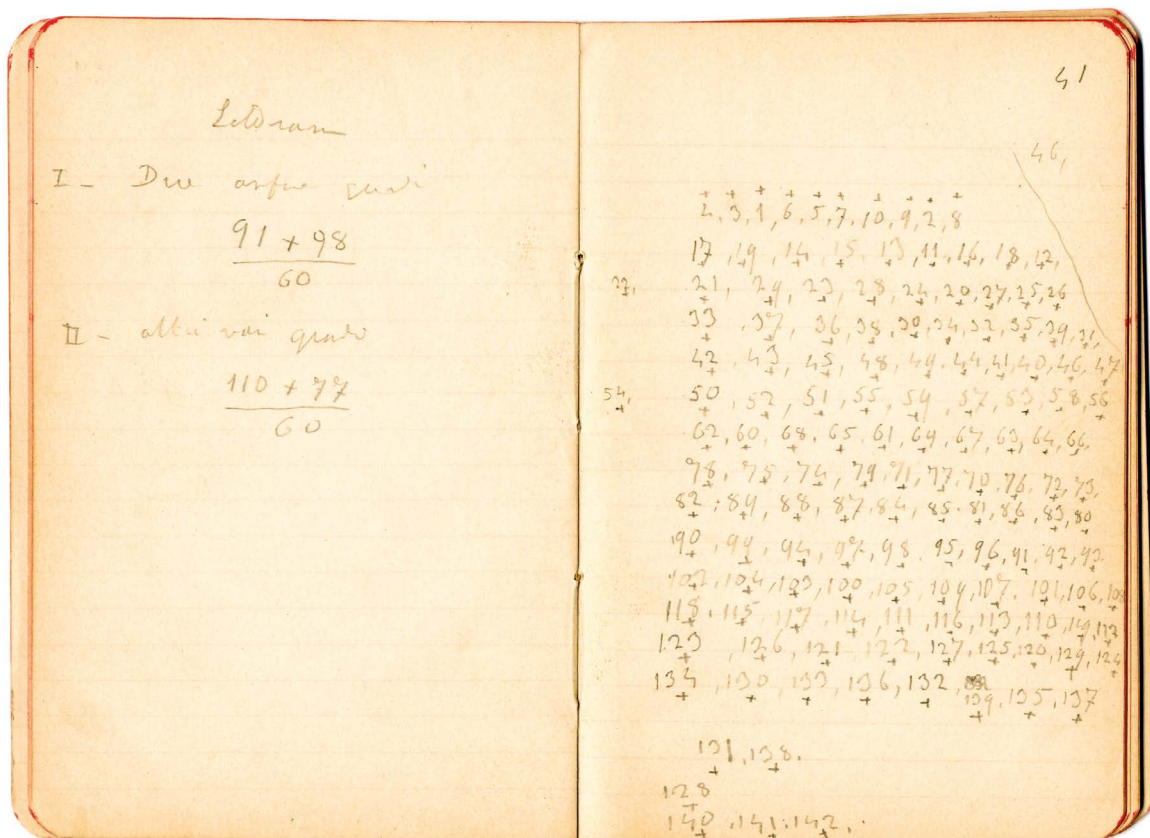 I - Due
91 + 98
60
II -
110 + 77
60
41
46,
2, 3, 1, 6, 5, 7, 10, 9, 2, 8
17, 19, 14, 15, 13, 11, 16, 18, 12,
27, 21, 29, 23, 28, 24, 20, 27, 25, 26
33, 37, 36, 38, 30, 34, 32, 35, 39, 31,
42, 43, 45, 48, 49, 44, 41, 40, 46, 47
54, 50, 52, 51, 55, 59, 57, 53, 58, 56
62, 60, 68, 65, 61, 69, 67, 63, 64, 66
78, 75, 74, 79, 71, 77, 70, 76, 72, 73,
82, 89, 88, 87, 84, 85, 81, 86, 83, 80
190, 99, 94, 97, 98, 95, 96, 91, 92, 93
102, 104, 103, 100, 105, 109, 107, 101, 106, 108
118, 115, 117, 114, 111, 116, 113, 110, 119, 112
123, 126, 121, 122, 127, 125, 120, 129, 124
134, 130, 133, 136, 132,
139, 135, 137
131, 138.
128
140, 141, 142,